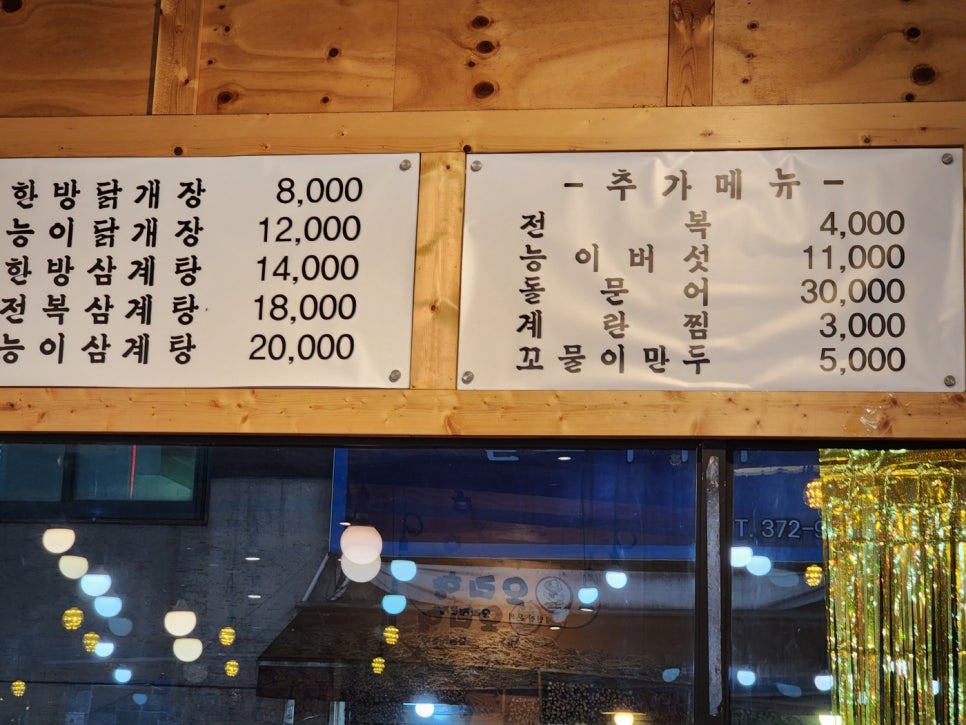 한방닭개장 8,000
능이닭개장 12,000
한방삼계탕 14,000
전복삼계탕 18,000
능이삼계탕 20,000
- 추가메뉴 -
전복 4,000
능이버섯 11,000
돌문어 30,000
계란찜 3,000
꼬물이만두 5,000
T. 372-9